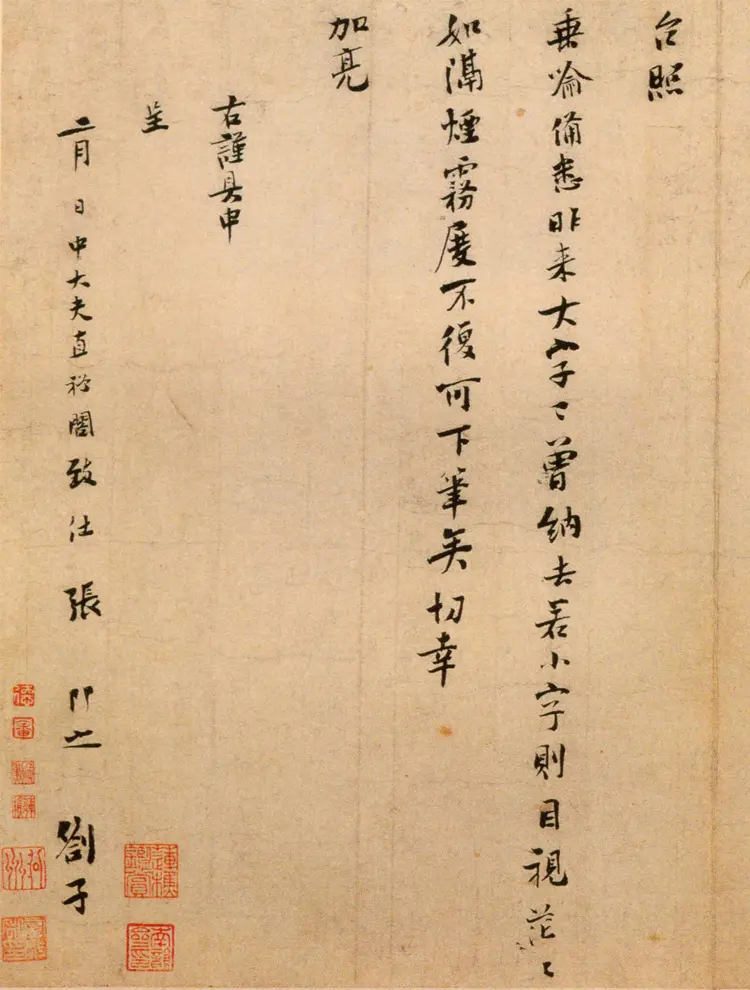 台照
垂喻備悉昨来大字已曾納去若小字則目視茫〻
如隔煙霧度不復可下筆矣切幸
加亮
右謹具申
呈
二月 日中大夫直秘閣致仕張 即之 劄子